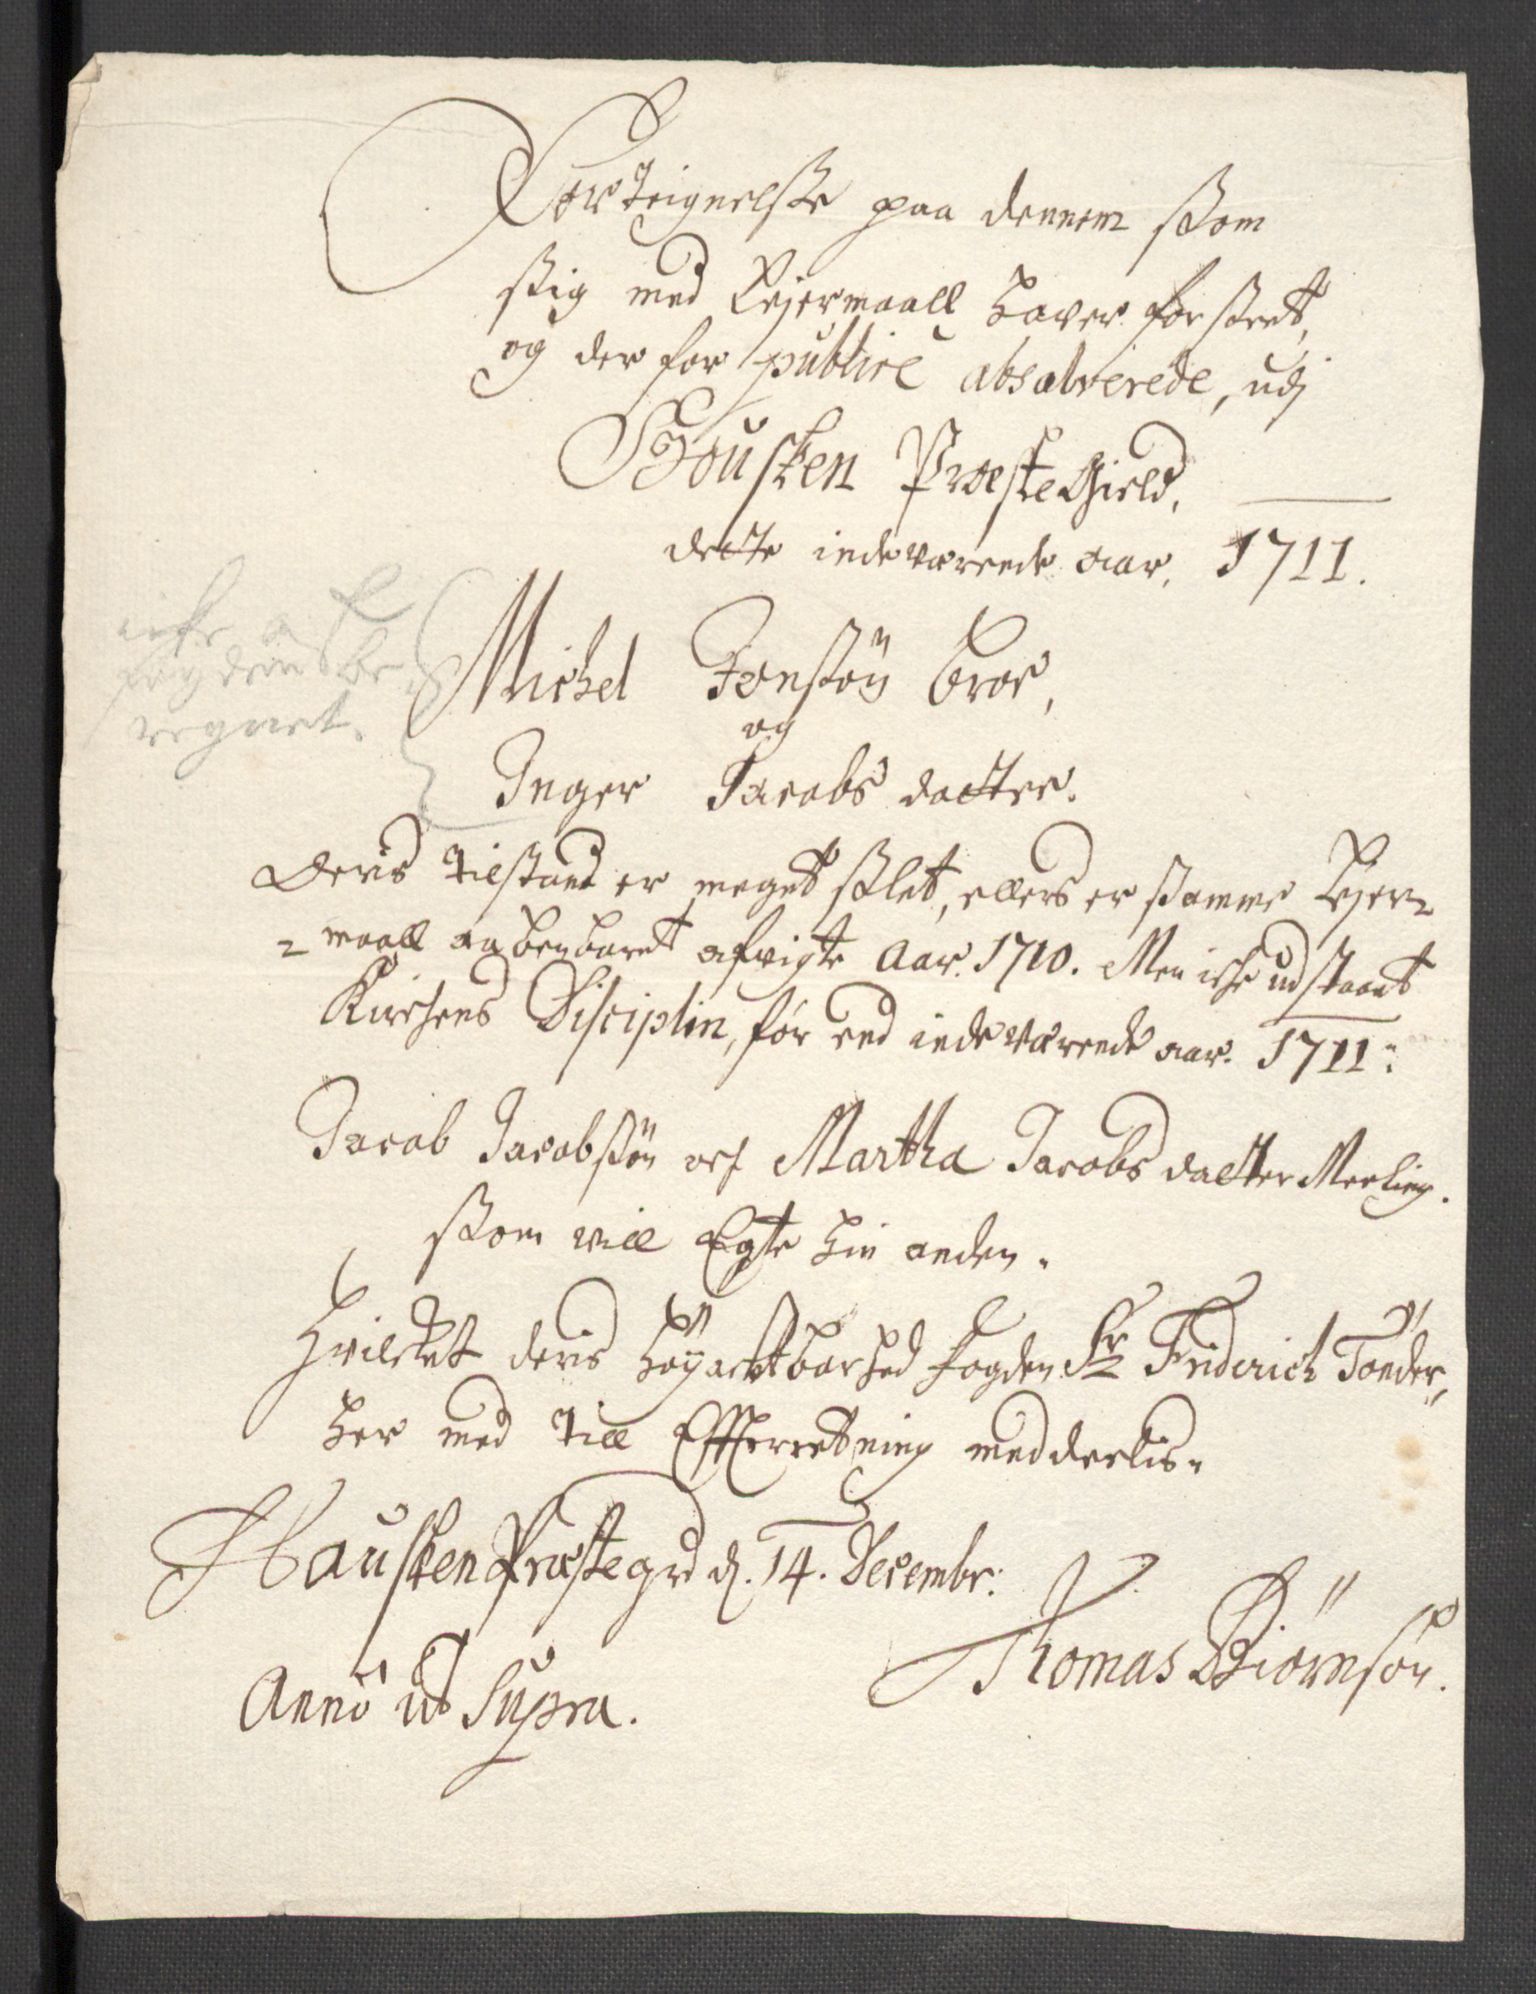 Forteignelsse paa dennem ssom
ssig med Lejermaall haver forsseet,
og der for publice absolverede, udj
Housken Præste Gield,
dette indeværende aar, 1711.
Michel Jonssøn Broe,
og
Inger Jacobs datter.
Deris tilstand er meget sslet, ellers er ssamme Lejer=
=maall aabenbaret afvigte Aar. 1710. Men iche udstaaet
Kirchens Disciplin, før end indeværende aar. 1711:
Jacob Jacobssøn och Martha Jacobs datter Merling.
ssom vill Egte hin anden.
Hvilcket deris Høyachtbarhed Fogden Sr Friderich Tønder,
her med till Effterretning meddeelis.
Hausken Præstegrd d. 14. Decembr:
Anno ut Supra.
Thomas Biørnsøn.
iche a
fogden be
regnet.